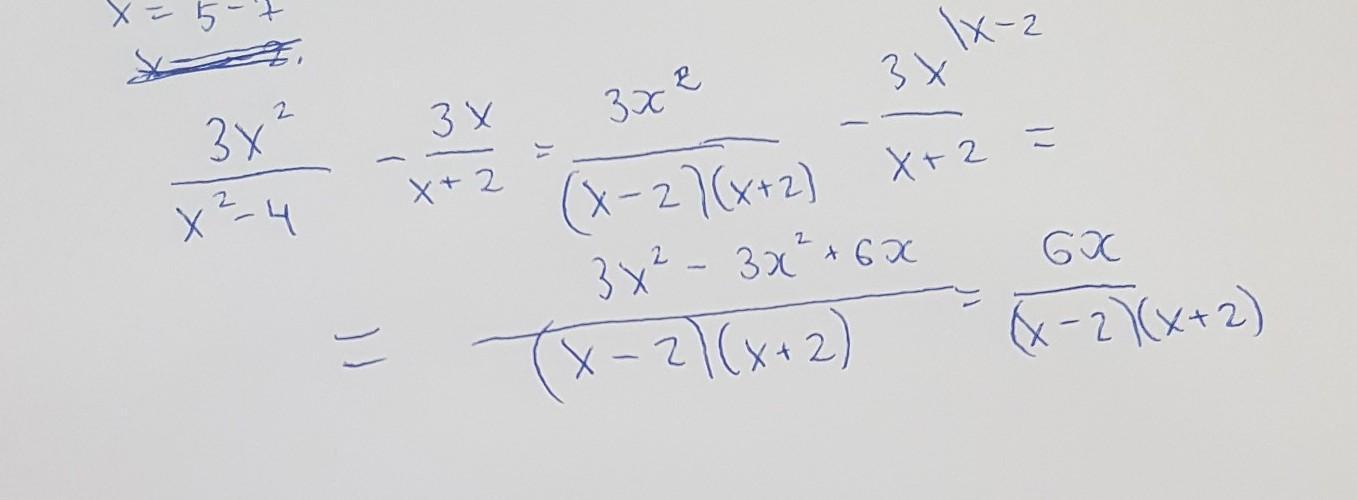 x = 5 - 7
3x² / (x² - 4) - 3x / (x + 2) = 3x² / ((x - 2)(x + 2)) - 3x \x - 2 / (x + 2) =
= (3x² - 3x² + 6x) / ((x - 2)(x + 2)) = 6x / ((x - 2)(x + 2))